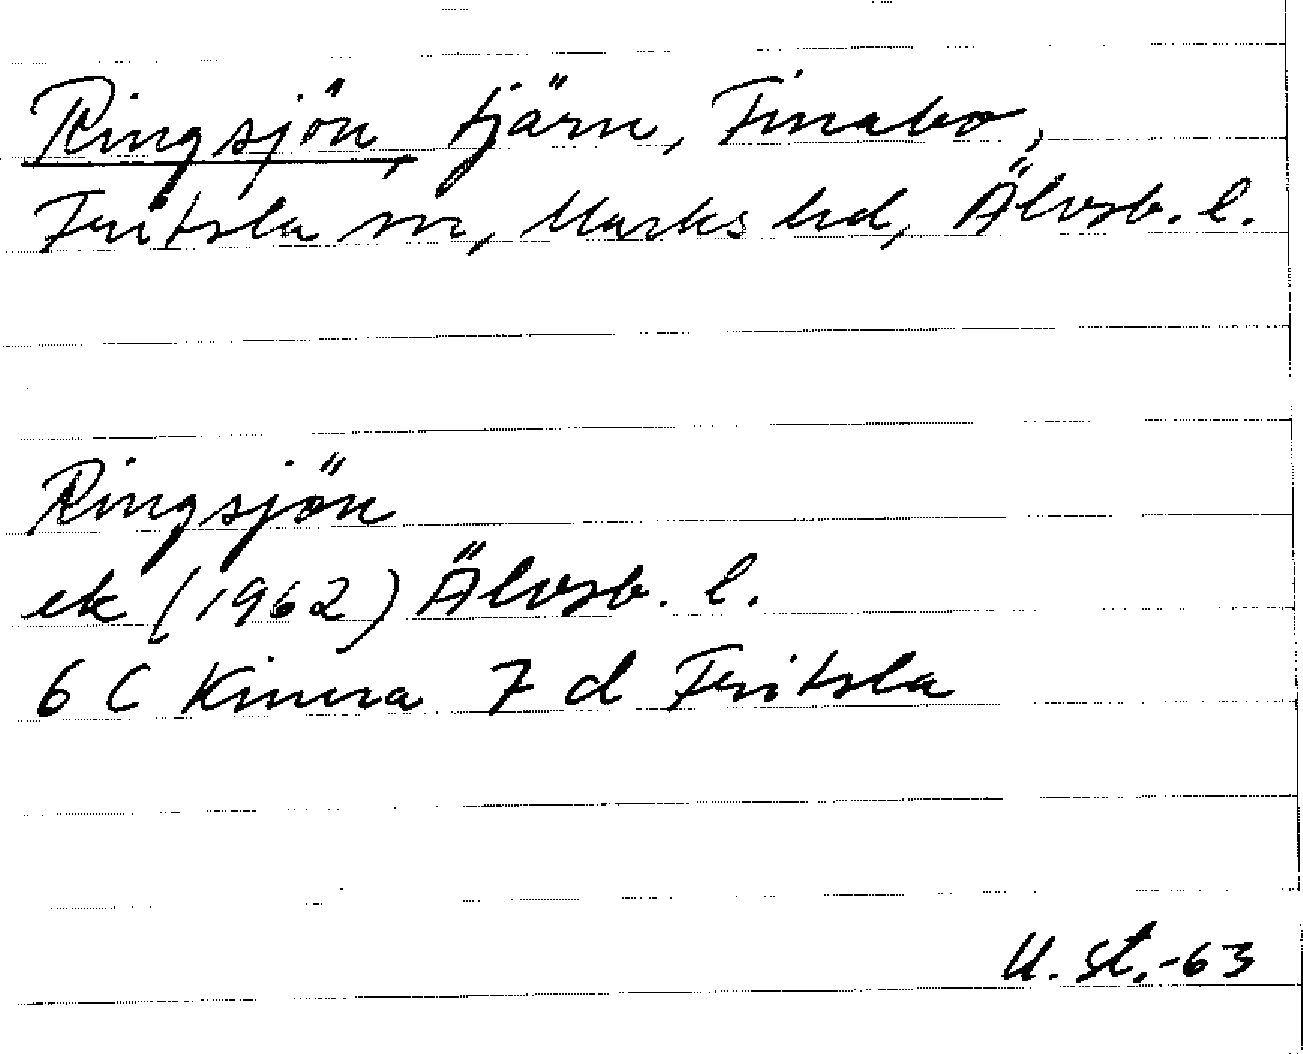 Ringsjön, tjärn, Finabo,
Fritsla sn, Marks hd, Älvsb. l.
Ringsjön
ek (1962) Älvsb. l.
6 C Kinna 7 d Fritsla
U. St. -63